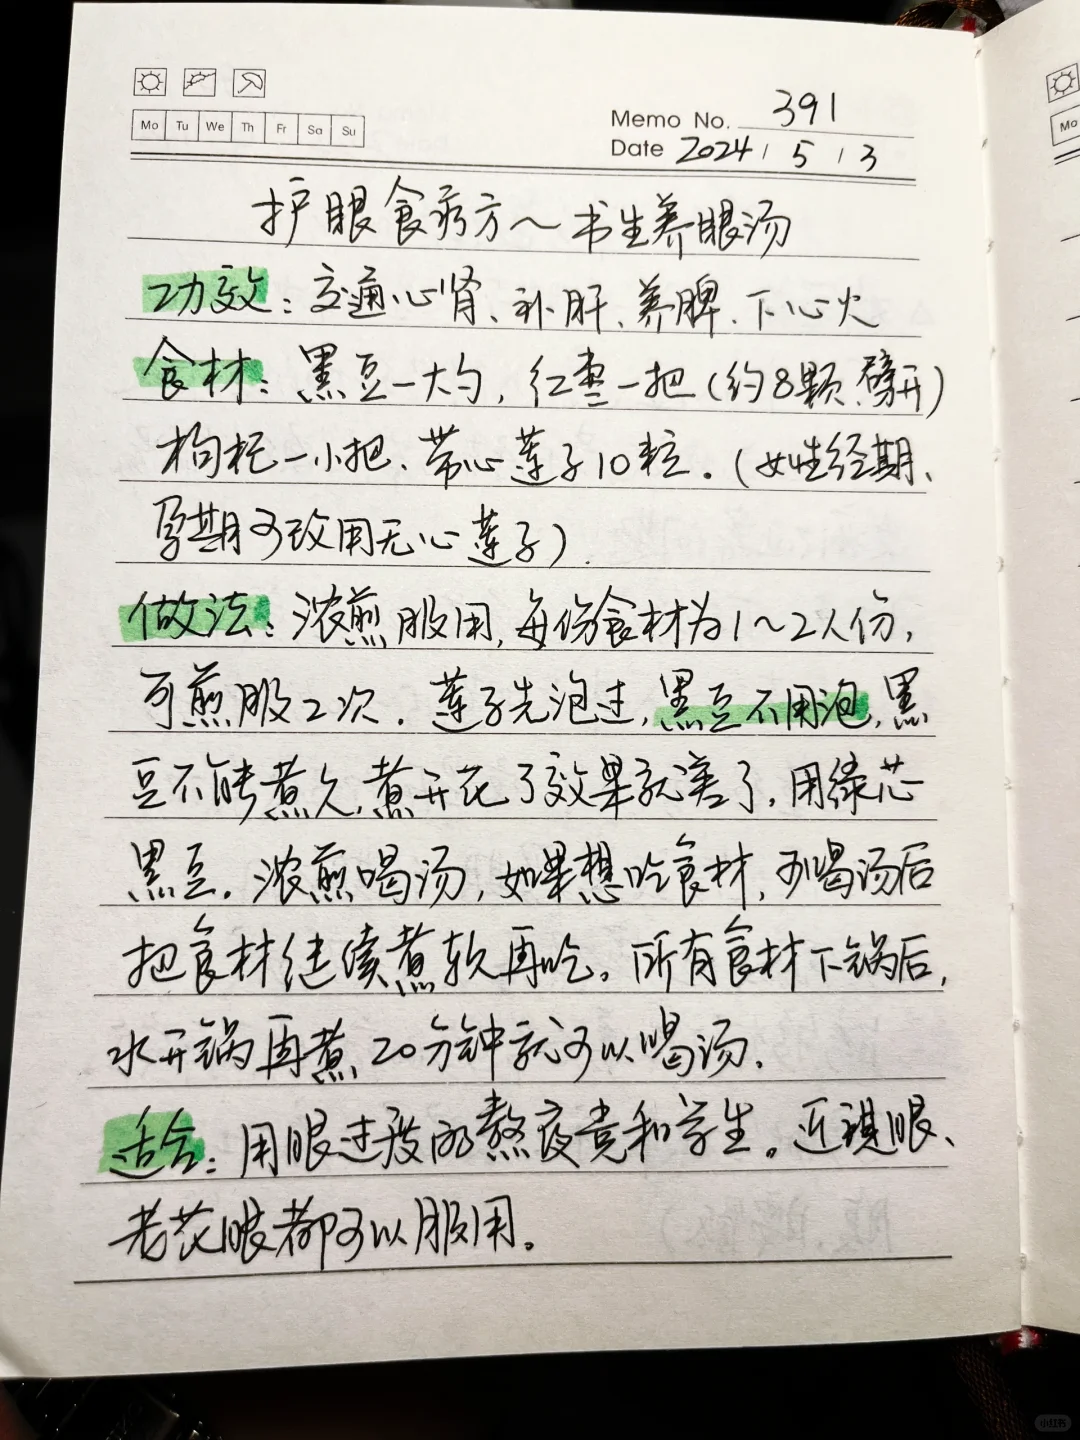 Mo Tu We Th Fr Sa Su
Memo No. 391
Date 2024 / 5 / 3
护眼食疗方～书生养眼汤
功效：交通心肾、补肝、养脾、下心火
食材：黑豆一大勺，红枣一把（约8颗、劈开）
枸杞一小把、带心莲子10粒。（女性经期、
孕期可改用无心莲子）
做法：浓煎服用，每份食材为1～2人份，
可煎服2次。莲子先泡过，黑豆不用泡，黑
豆不能煮久，煮开花了效果就差了，用绿芯
黑豆。浓煎喝汤，如果想吃食材，可喝汤后
把食材继续煮软再吃。所有食材下锅后，
水开锅再煮20分钟就可以喝汤。
适合：用眼过度的熬夜党和学生。近视眼、
老花眼都可以服用。
Mo
小红书